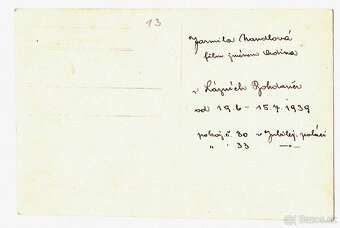 13
Jarmila Mandlová
film. jménem Adina
v Lázních Bohdaneč
od 19.6 - 15.7.1939
pokoj č. 30 v Jubilej. paláci
" " 33 —"—
bazos.sk